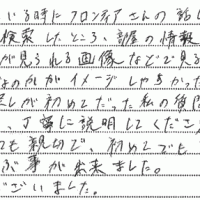 いる時にフロンティアさんの話し
検索したところ、部屋の情報
が見られる画像などで見る
なのかがイメージしやすかった
しが初めてだった私の質問
、丁寧に説明してくださ
ても親切で、初めてでも
ぶ事が出来ました。
ございました。